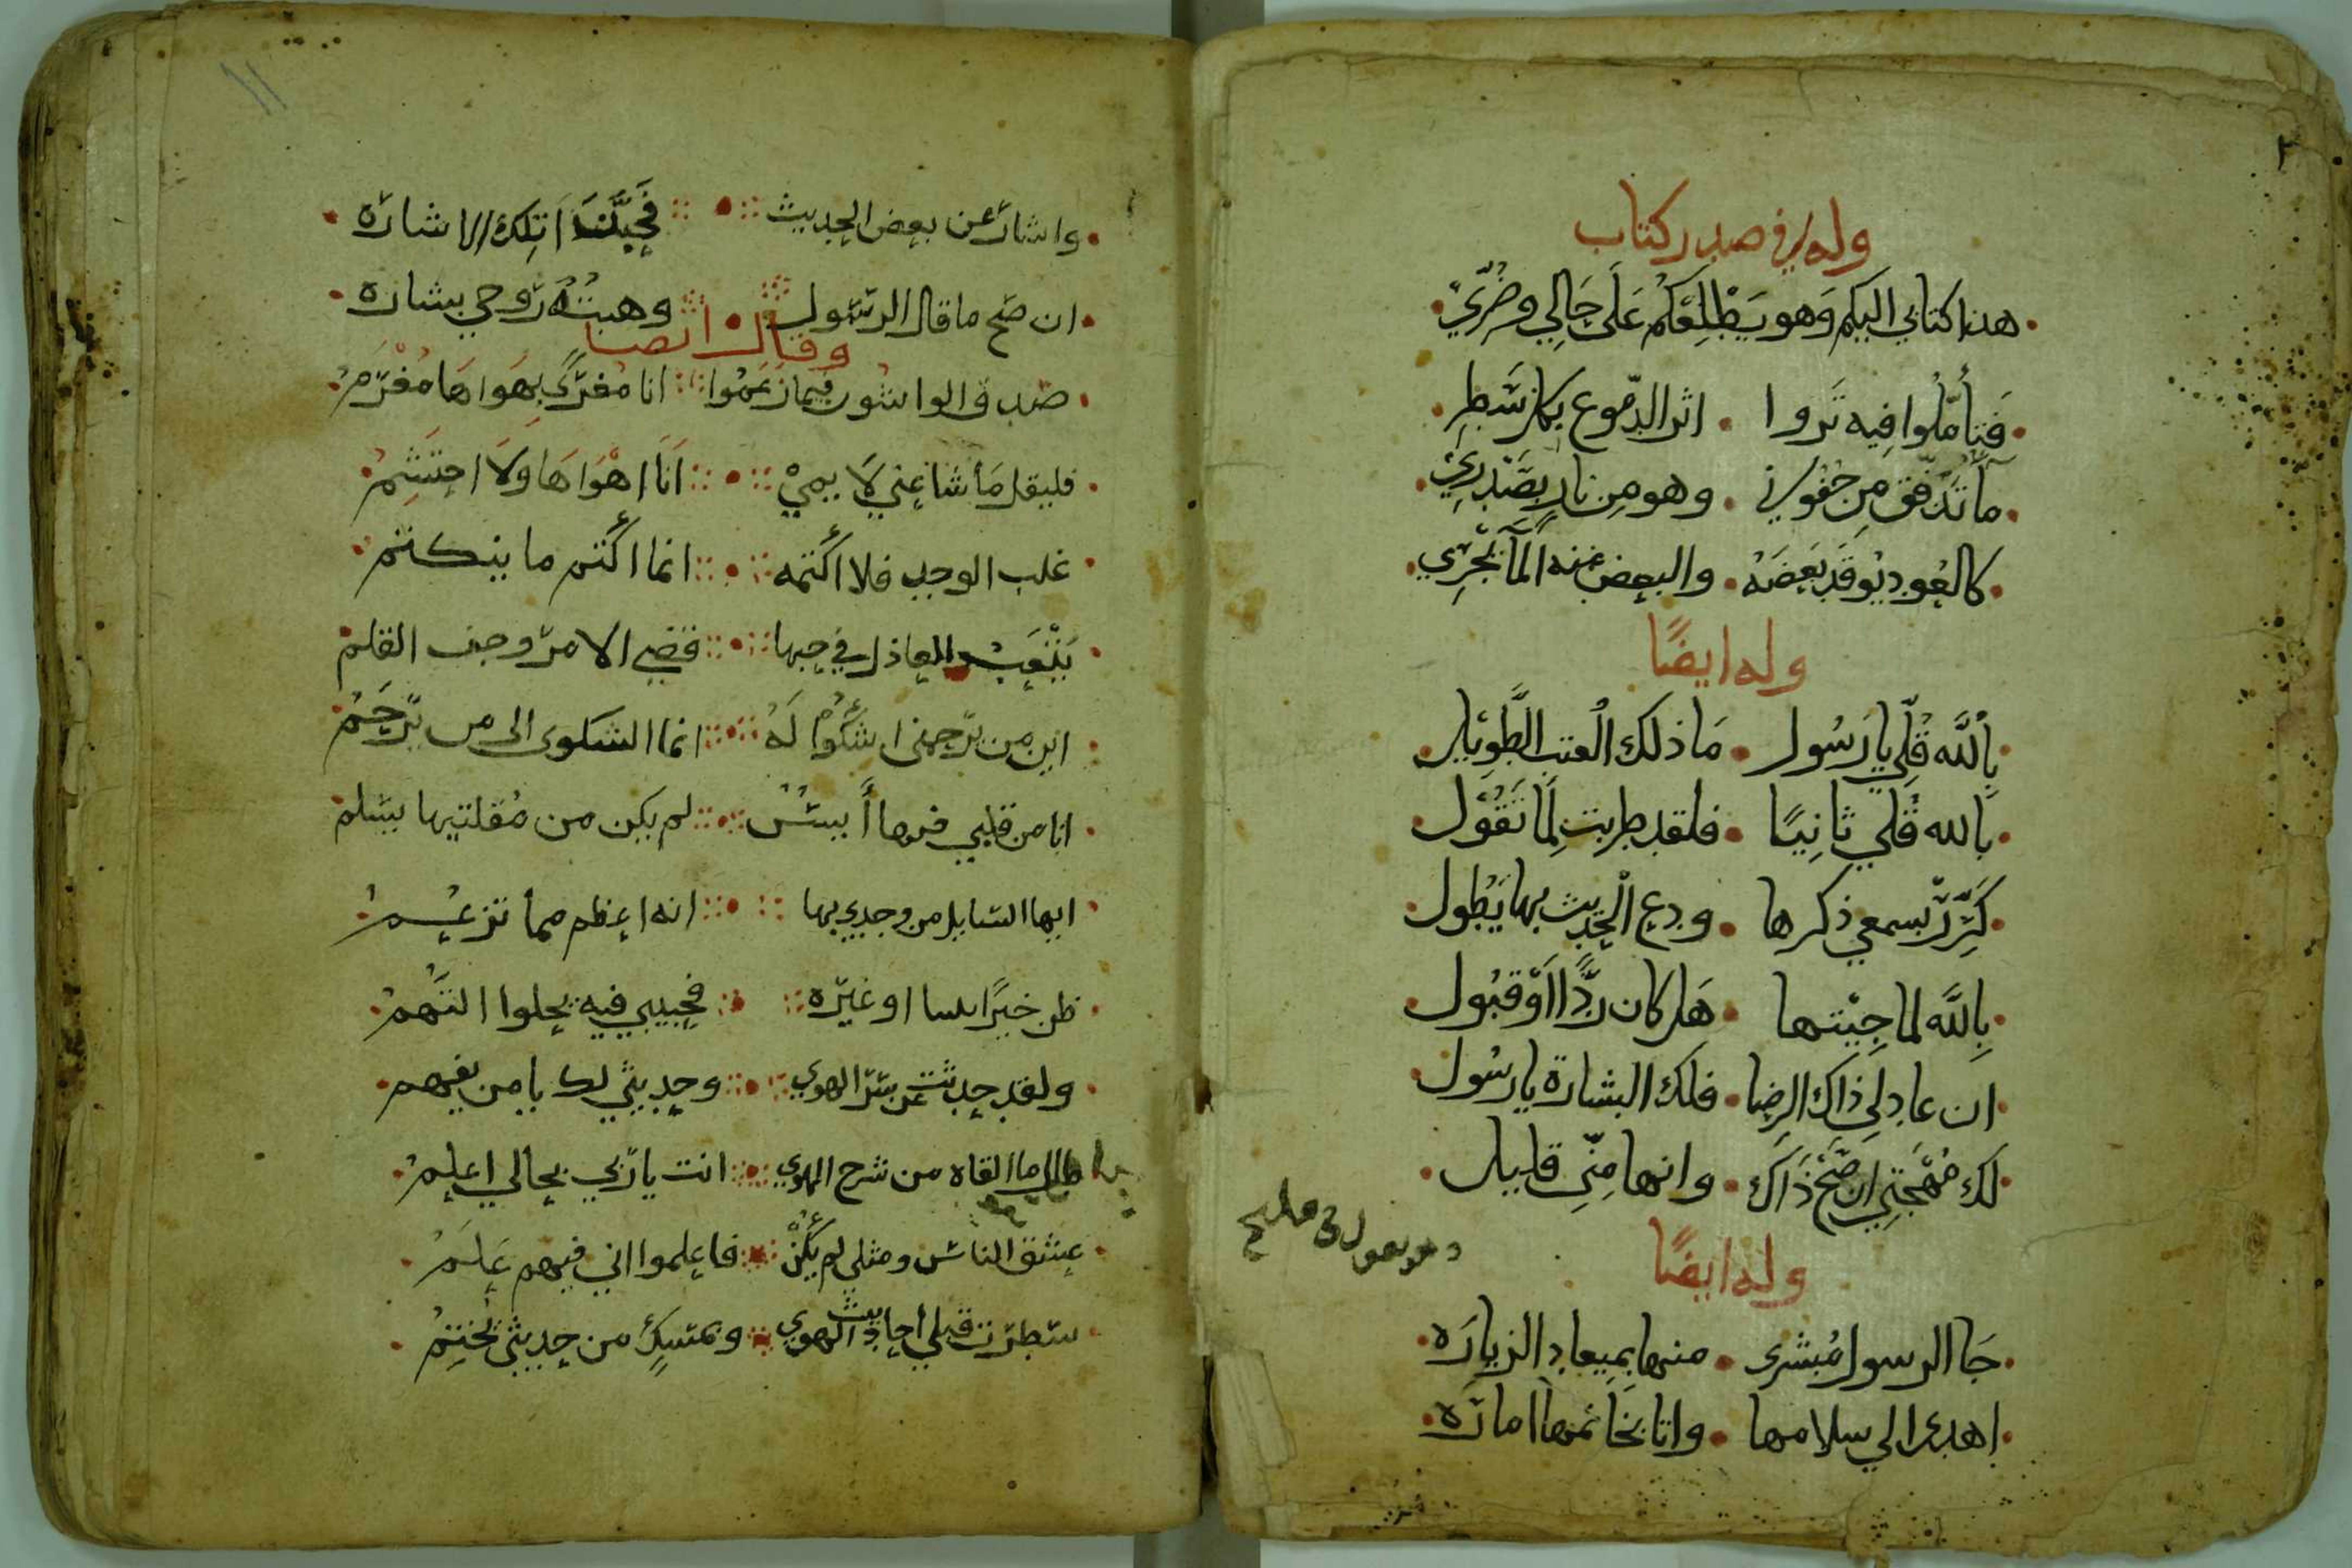 وله في صدر كتاب
هذا كتابي اليكم وهو يطلعكم على حالي وضري
فتأملوا فيه تروا اثر الدموع بكل سطر
ما تدفق من جفوني وهو من نار بصدري
كالعود يوقد بعضه والبعض منه الما يجري
وله ايضًا
بالله قلي يا رسول ما ذلك العتب الطويل
بالله قلي ثانيًا فلقد طربت لما تقول
كرر بسمعي ذكرها ودع الحديث بها يطول
بالله لما جيتها هل كان ردًا او قبول
ان عاد لي ذاك الرضا فلك البشارة يا رسول
لك مهجتي ان صح ذاك وانها مني قليل
وله ايضًا
جا الرسول مبشرى منها بميعاد الزياره
اهدى الي سلامها واتا بخاتمها اماره
وهو يقول في مليح
١١
واشار عن بعض الحديث فحبذا تلك الاشاره
ان صح ما قال الرسول وهبته روحي بشاره
وقال ايضا
صدق الواشون فيما زعموا انا مغرى بهواها مغرم
فليقل ما شا عني لايمي انا اهواها ولا احتشم
غلب الوجد فلا اكتمه انما اكتم ما ينكتم
يتعب العاذل في حبها قضي الامر وجف القلم
اين من يرحمني اشكوا له انما الشكوى الى من يرحم
انا من قلبي منها أيس لم يكن من مقلتيها يسلم
ايها السايل من وجدي بها انه اعظم مما تزعم
ظن خيرًا بيننا او غيره فحبيبي فيه يحلوا التهم
ولقد حدثت عن سر الهوي وحديثي لك يا من يفهم
طال ما القاه من شرح الهوي انت يا ربي بحالي اعلم
عشق الناس ومثلي لم يكن فاعلموا اني فيهم علم
سطرت قبلي احاديث الهوي وبمسك من حديثي تختم